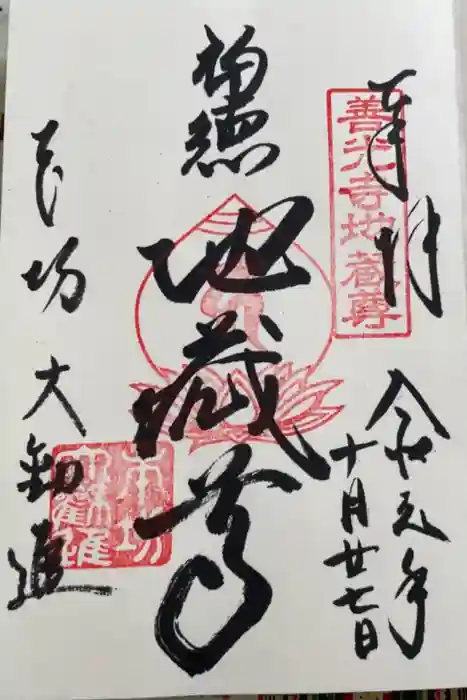 奉拝
善光寺地蔵尊
令和元年
十月廿七日
地蔵尊
本坊 大勧進
本坊
大勸進